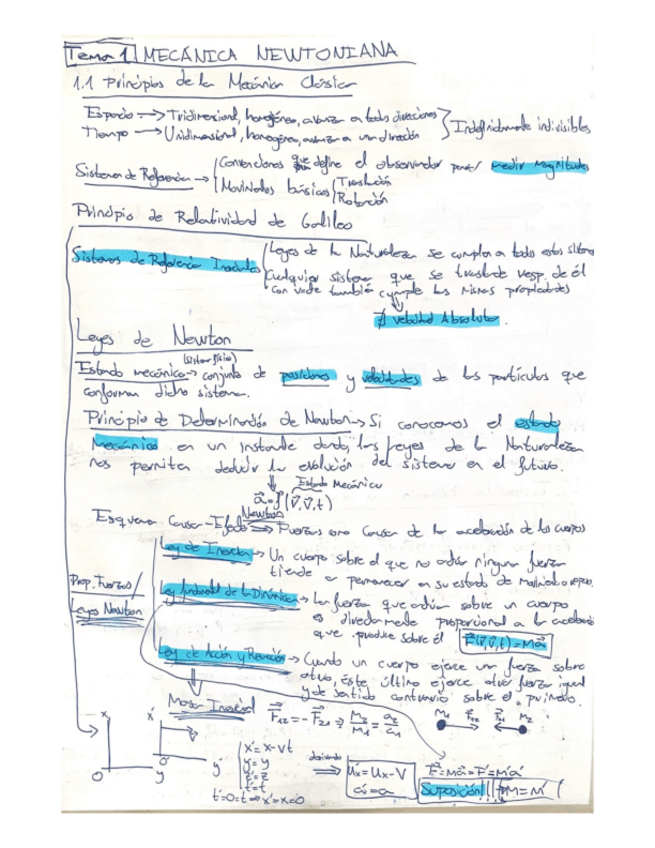 Tema 1 MECÁNICA NEWTONIANA
1.1 Principios de la Mecánica Clásica
Espacio → Tridimensional, homogéneo, avanza a todas direcciones
Tiempo → Unidimensional, homogéneo, avanza a una dirección } Indefinidamente indivisibles
Sistema de Referencia → Convenciones que define el observador para medir magnitudes
Movimientos básicos Traslación
Rotación
Principio de Relatividad de Galileo
Sistemas de Referencia Inerciales Leyes de la Naturaleza se cumplen a todos estos sistemas
Cualquier sistema que se traslade resp. de él
con v=cte también cumple las mismas propiedades
⇓
∄ velocidad Absoluta.
Leyes de Newton
(sistema físico)
Estado mecánico → conjunto de posiciones y velocidades de las partículas que
conforman dicho sistema.
Principio de Determinación de Newton → Si conocemos el estado
Mecánico en un instante dado, las Leyes de la Naturaleza
nos permiten deducir la evolución del sistema en el futuro.
⇓ Estado Mecánico
a⃗=f(r⃗,v⃗,t)
Newton
Esquema Causa-Efecto ⇒ Fuerzas como Causa de la aceleración de los cuerpos
Ley de Inercia → Un cuerpo sobre el que no actúa ninguna fuerza
tiende a permanecer en su estado de movimiento o reposo.
Prop. Fuerzas/
Leyes Newton
Ley fundamental de la Dinámica → La fuerza que actúa sobre un cuerpo
es directamente proporcional a la aceleración
que produce sobre él F⃗(r⃗,v⃗,t)=Ma⃗
Ley de Acción y Reacción → Cuando un cuerpo ejerce una fuerza sobre
otro, éste último ejerce otra fuerza igual
y de sentido contrario sobre el primero.
Masa Inercial F⃗12=-F⃗21 ⇒ M2/M1 = a2/a1 M1 F⃗12 F⃗21 M2
x x'
O y y'
x'=x-vt
y'=y
z'=z
t'=t
t'=0=t ⇒ x'=x=0
derivando ⇒ u'x=ux-v
a'x=a
F⃗=ma⃗=F⃗'=m'a⃗'
Suposición!! M=M'